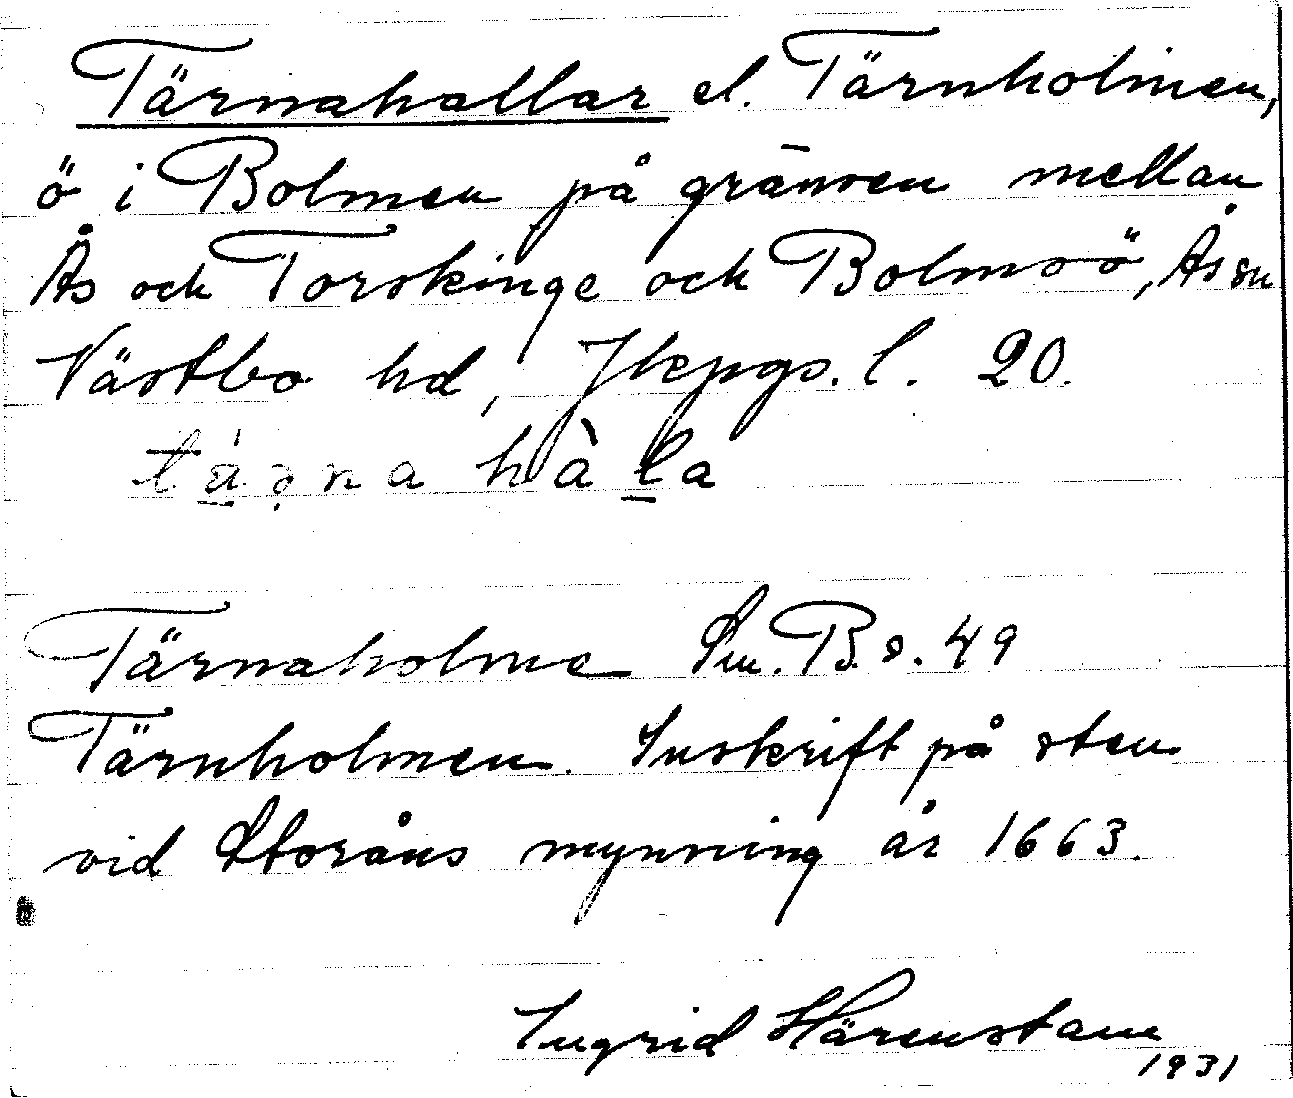 Tärnahallar el. Tärnholmen,
ö i Bolmen på gränsen mellan
Ås och Torskinge och Bolmsö, Ås sn
Västbo hd, Jkpgs. l. 20.
Tärnaholme Sm. B. s. 49
Tärnholmen. Inskrift på sten
vid Storåns mynning år 1663.
Ingrid Härenstam
1931